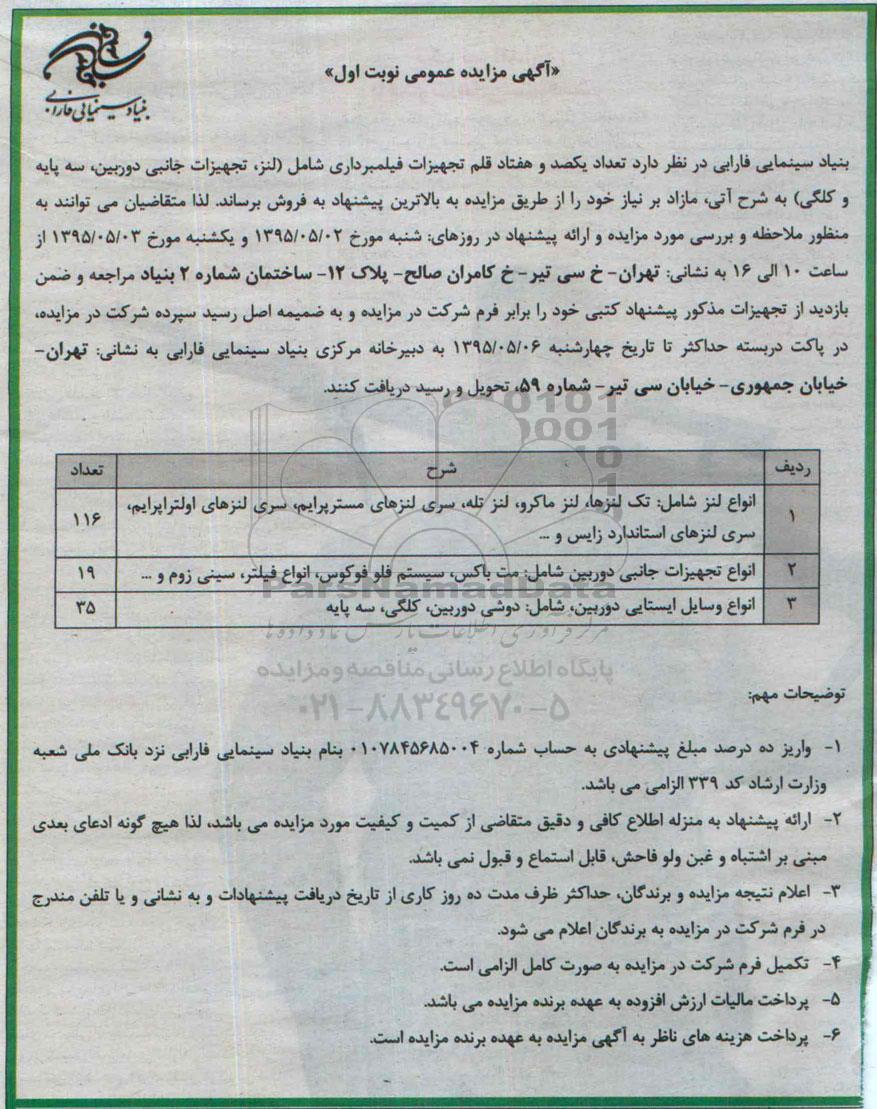 بنیاد سینمایی فارابی
«آگهی مزایده عمومی نوبت اول»
بنیاد سینمایی فارابی در نظر دارد تعداد یکصد و هفتاد قلم تجهیزات فیلمبرداری شامل (لنز، تجهیزات جانبی دوربین، سه پایه
و کلگی) به شرح آتی، مازاد بر نیاز خود را از طریق مزایده به بالاترین پیشنهاد به فروش برساند. لذا متقاضیان می توانند به
منظور ملاحظه و بررسی مورد مزایده و ارائه پیشنهاد در روزهای: شنبه مورخ ۱۳۹۵/۰۵/۰۲ و یکشنبه مورخ ۱۳۹۵/۰۵/۰۳ از
ساعت ۱۰ الی ۱۶ به نشانی: تهران- خ سی تیر- خ کامران صالح- پلاک ۱۲- ساختمان شماره ۲ بنیاد مراجعه و ضمن
بازدید از تجهیزات مذکور پیشنهاد کتبی خود را برابر فرم شرکت در مزایده و به ضمیمه اصل رسید سپرده شرکت در مزایده،
در پاکت دربسته حداکثر تا تاریخ چهارشنبه ۱۳۹۵/۰۵/۰۶ به دبیرخانه مرکزی بنیاد سینمایی فارابی به نشانی: تهران-
خیابان جمهوری- خیابان سی تیر- شماره ۵۹، تحویل و رسید دریافت کنند.
ردیف شرح تعداد
۱ انواع لنز شامل: تک لنزها، لنز ماکرو، لنز تله، سری لنزهای مسترپرایم، سری لنزهای اولتراپرایم، ۱۱۶
سری لنزهای استاندارد زایس و ...
۲ انواع تجهیزات جانبی دوربین شامل: مت باکس، سیستم فلو فوکوس، انواع فیلتر، سینی زوم و ... ۱۹
۳ انواع وسایل ایستایی دوربین، شامل: دوشی دوربین، کلگی، سه پایه ۳۵
ParsNamadData
مرکز فرآوری اطلاعات پارس نماد داده ها
پایگاه اطلاع رسانی مناقصه و مزایده
۰۲۱-۸۸۳۴۹۶۷۰-۵
توضیحات مهم:
۱- واریز ده درصد مبلغ پیشنهادی به حساب شماره ۰۱۰۷۸۴۵۶۸۵۰۰۴ بنام بنیاد سینمایی فارابی نزد بانک ملی شعبه
وزارت ارشاد کد ۳۳۹ الزامی می باشد.
۲- ارائه پیشنهاد به منزله اطلاع کافی و دقیق متقاضی از کمیت و کیفیت مورد مزایده می باشد، لذا هیچ گونه ادعای بعدی
مبنی بر اشتباه و غبن ولو فاحش، قابل استماع و قبول نمی باشد.
۳- اعلام نتیجه مزایده و برندگان، حداکثر ظرف مدت ده روز کاری از تاریخ دریافت پیشنهادات و به نشانی و یا تلفن مندرج
در فرم شرکت در مزایده به برندگان اعلام می شود.
۴- تکمیل فرم شرکت در مزایده به صورت کامل الزامی است.
۵- پرداخت مالیات ارزش افزوده به عهده برنده مزایده می باشد.
۶- پرداخت هزینه های ناظر به آگهی مزایده به عهده برنده مزایده است.